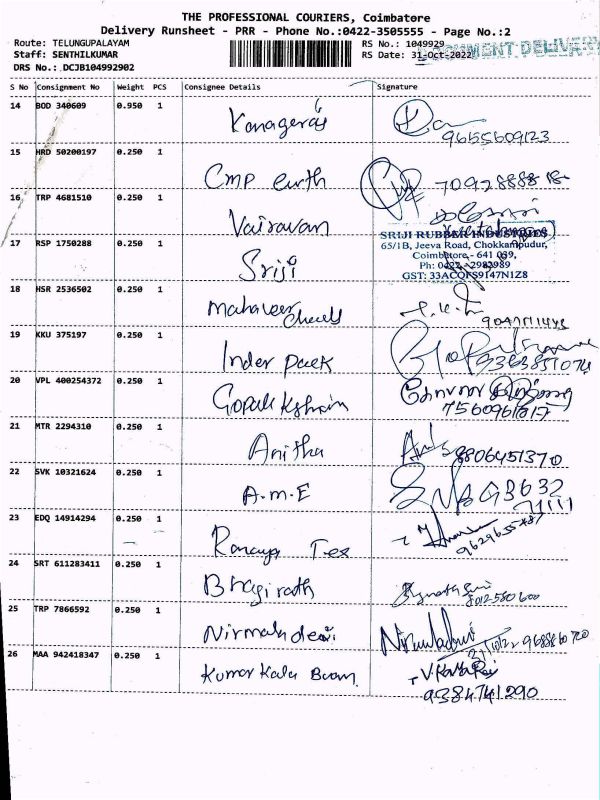 THE PROFESSIONAL COURIERS, Coimbatore
Delivery Runsheet - PRR - Phone No.:0422-3505555 - Page No.:2
Route: TELUNGUPALAYAM
RS No.: 1049929
Staff: SENTHILKUMAR
RS Date: 31-Oct-2022
DOCUMENT DELIVERY
DRS No.: DCJB104992902
S No Consignment No Weight PCS Consignee Details Signature
14 BOD 340609 0.950 1
Kanageraj
9655609123
15 HRD 50200197 0.250 1
CMP earth
16 TRP 4681510 0.250 1
Vairavan
17 RSP 1750288 0.250 1
Sriji
SRIJI RUBBER INDUSTRIES
65/1B, Jeeva Road, Chokkampudur,
Coimbatore - 641 039,
Ph: 0422 - 2982989
GST: 33ACOFS9147N1Z8
18 HSR 2536502 0.250 1
Mahaveer
19 KKU 375197 0.250 1
Inder pack
9363851074
20 VPL 400254372 0.250 1
7560961817
21 MTR 2294310 0.250 1
Anitha
8806451370
22 SVK 10321624 0.250 1
A.M.E
93632
71111
23 EDQ 14914294 0.250 1
Tex
24 SRT 611283411 0.250 1
Bhagirath
8012580600
25 TRP 7866592 0.250 1
Nirmala devi
31/10/22
26 MAA 942418347 0.250 1
Kumar Kala
9384741290